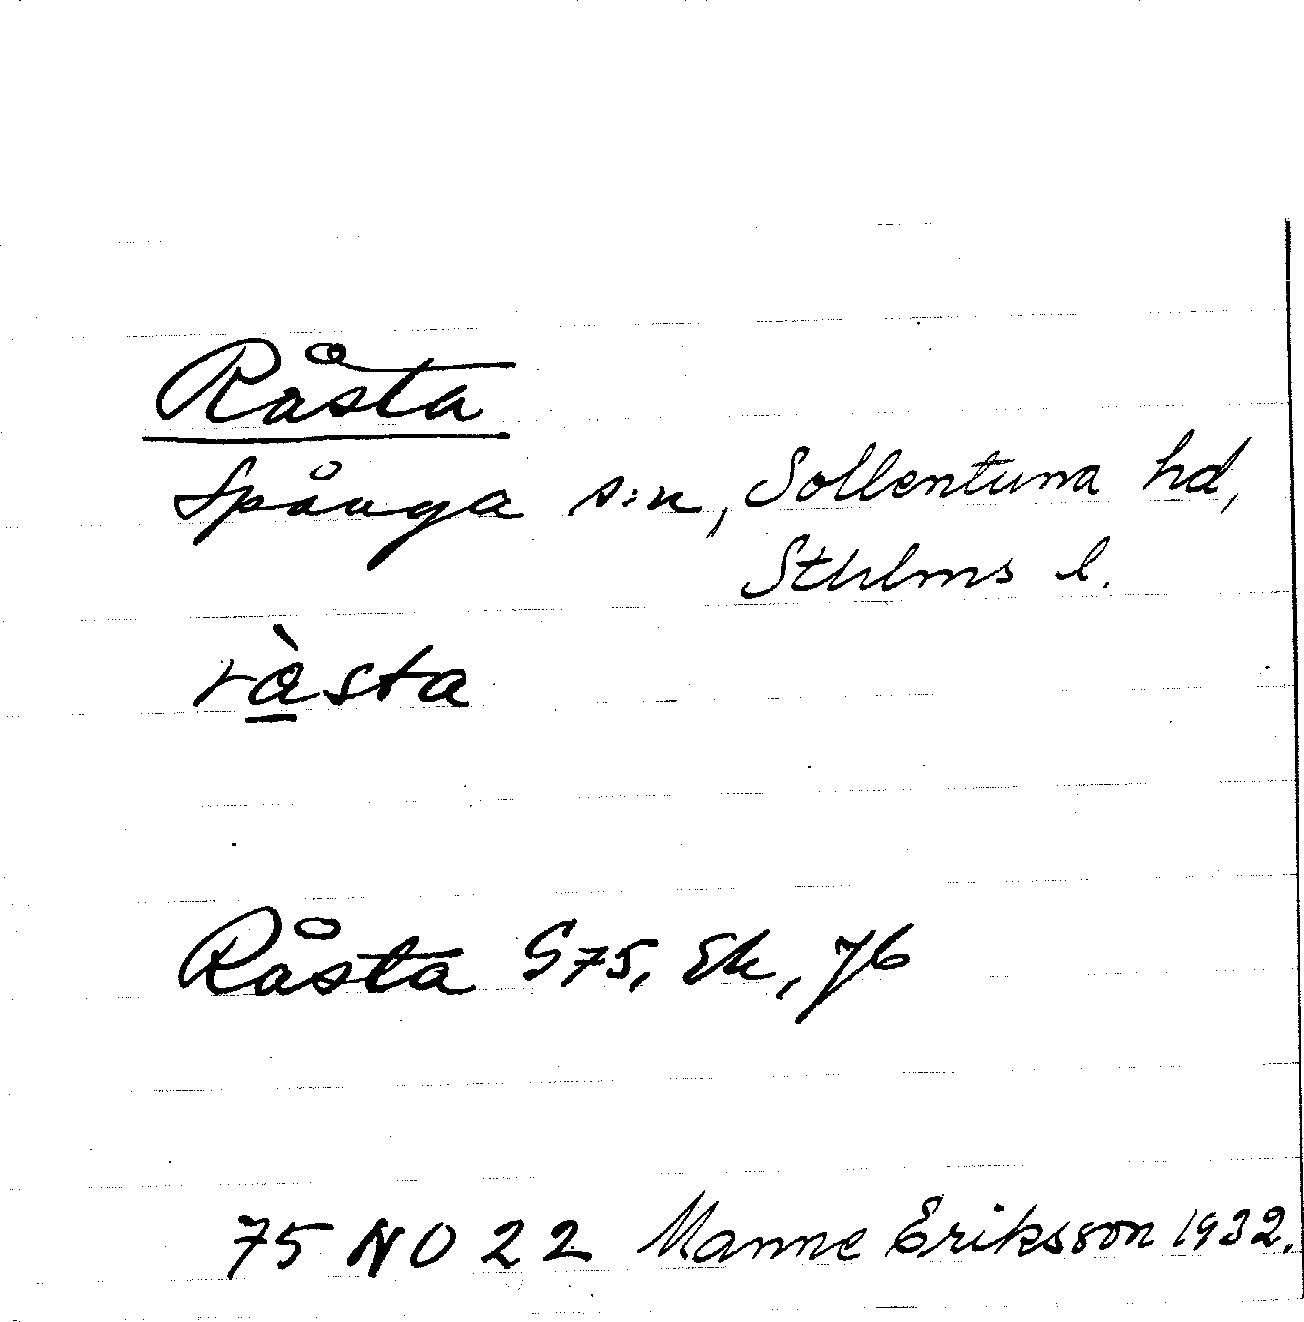 Råsta
Spånga s:n, Sollentuna hd,
Sthlms l.
ràsta
Råsta G75, Ek, 76
75 NO 22 Manne Eriksson 1932.